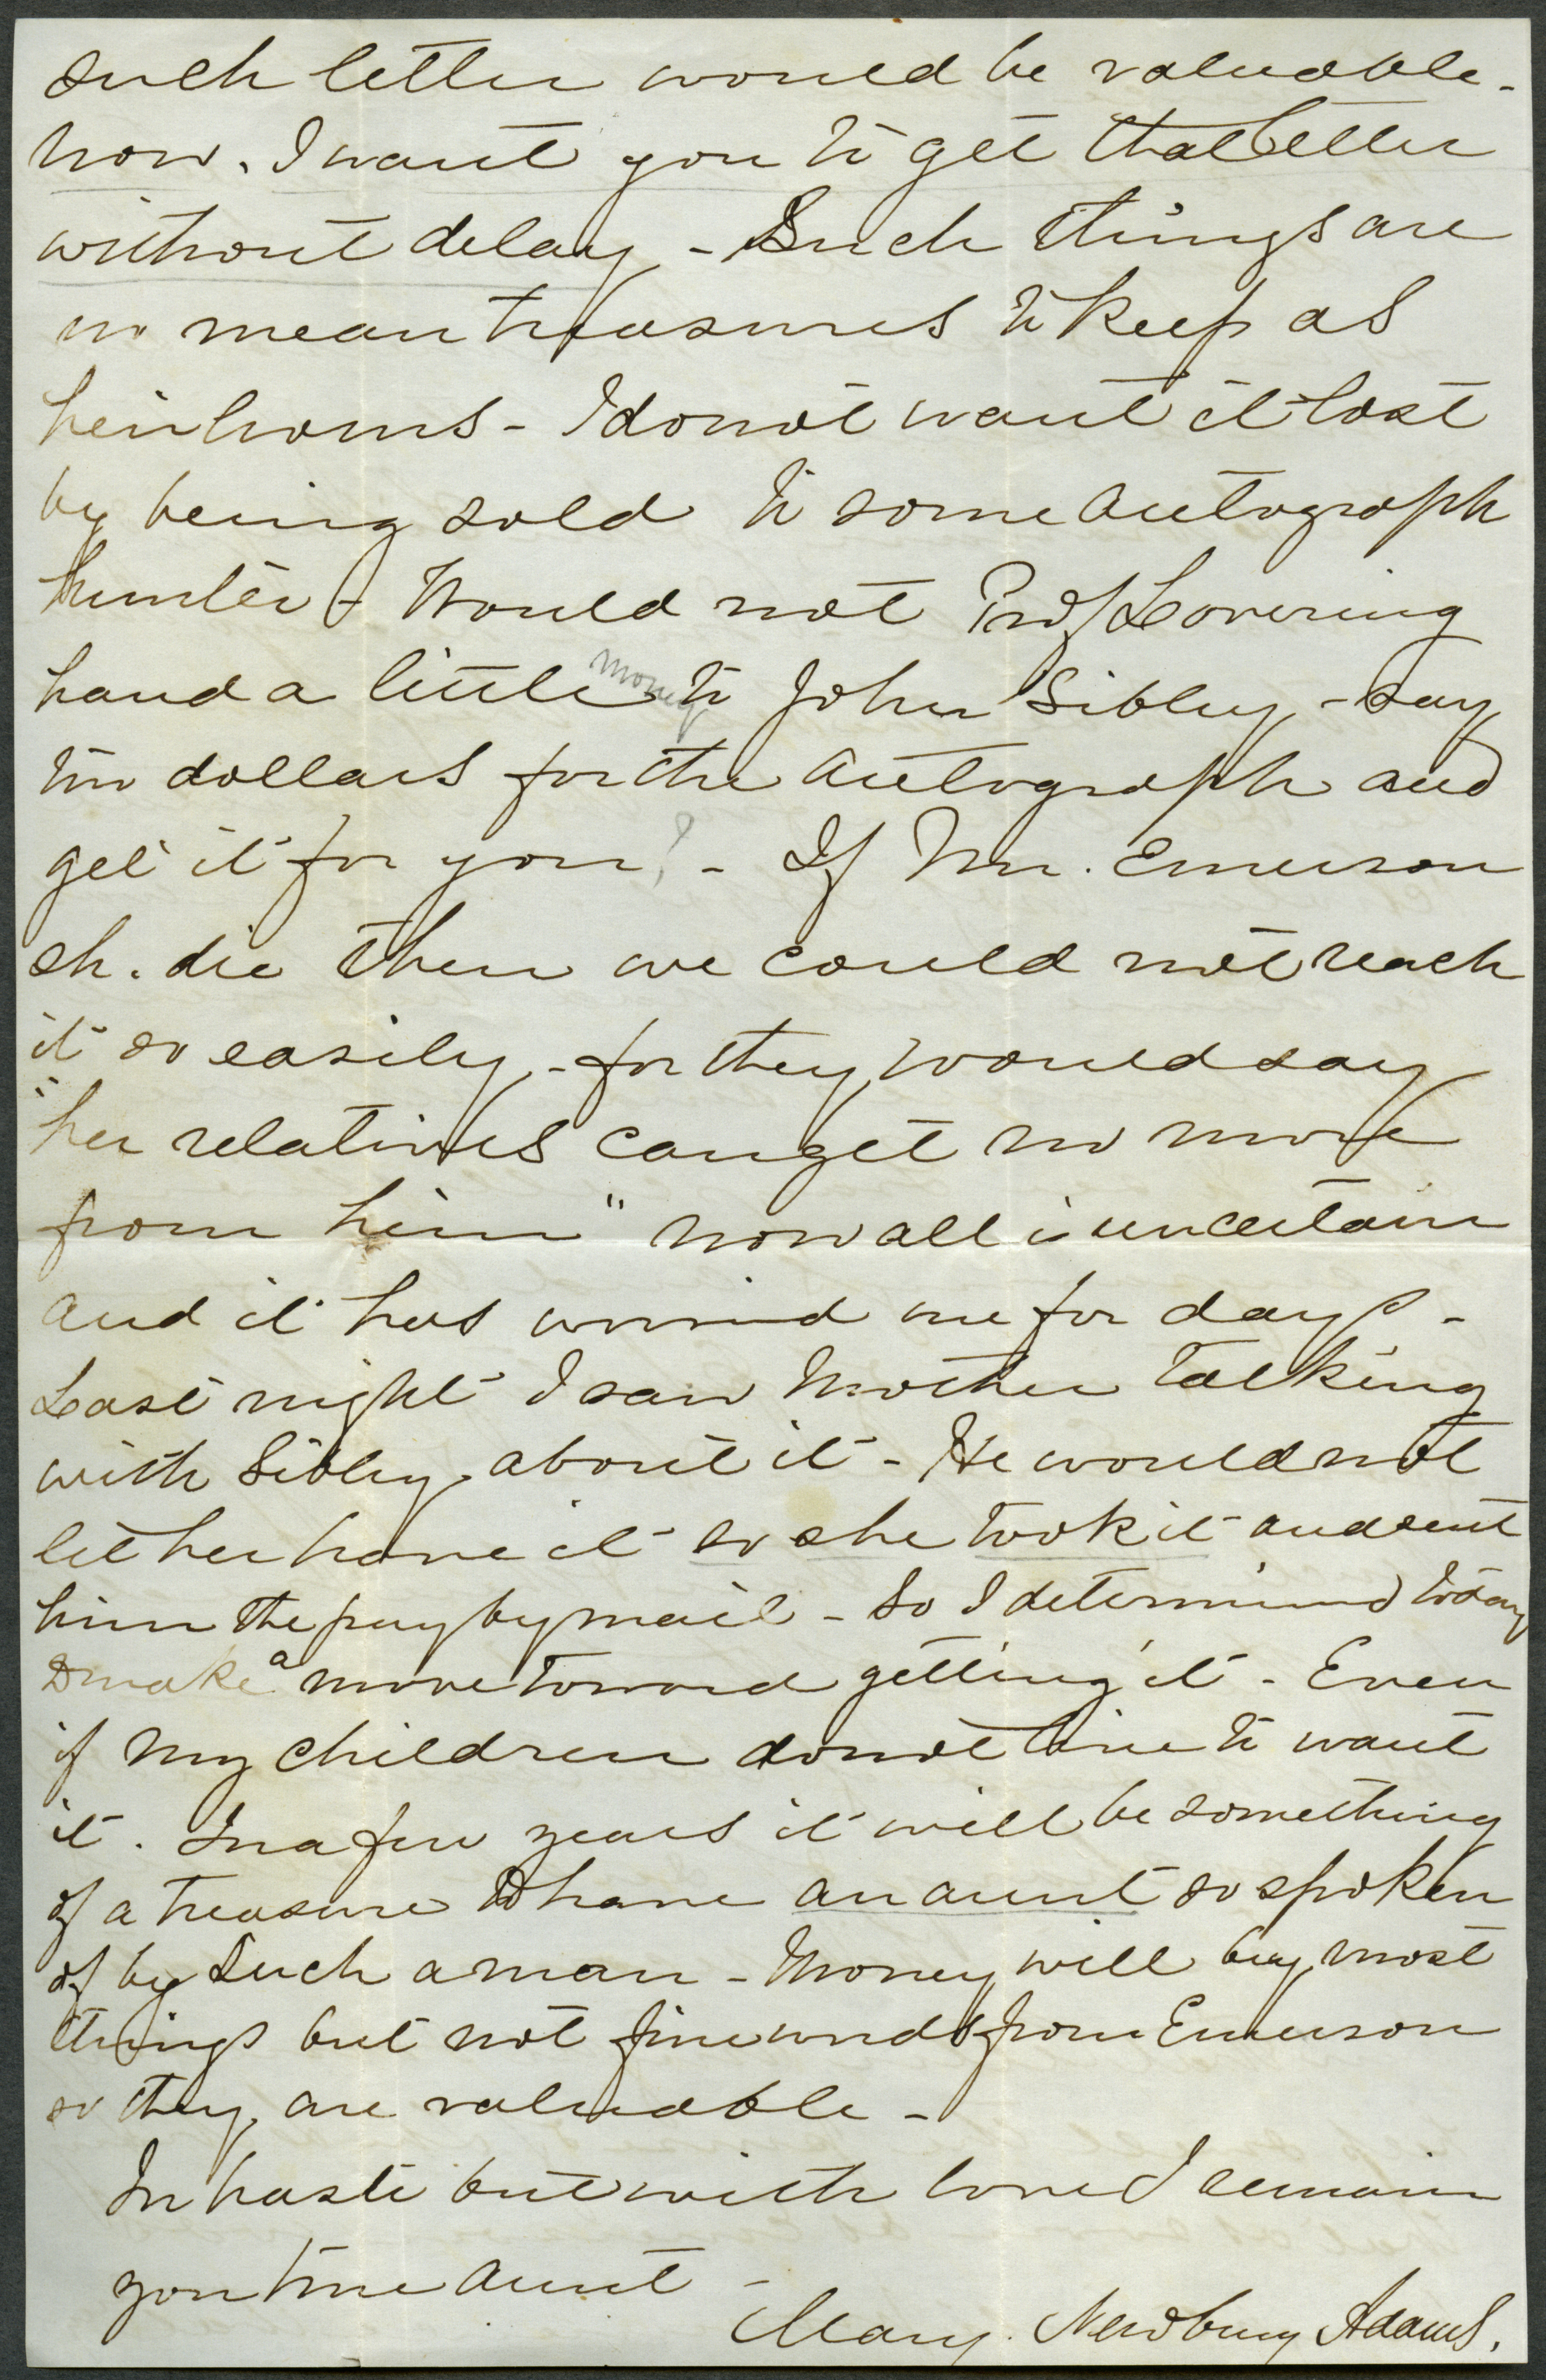 such letter would be valuable.
now. I want you to get that letter
without delay - Such things are
no mean treasures to keep as
heirlooms - I do not want it lost
by being sold to some autograph
hunter - Would not Prof Lovering
hand a little money to John Sibley, - say
two dollars for the autograph and
get it for you? - If Mr. Emerson
sh. die then we could not reach
it so easily, - for they would say
"her relatives can get no more
from him" now all is uncertain
and it has worried me for days -
Last night I saw Mother talking
with Sibley about it - He would not
let her have it so she took it and sent
him the pay by mail - So I determined today
to make a move toward getting it - Even
if my children do not live to want
it. In a few years it will be something
of a treasure to have an aunt so spoken
of by such a man - Money will buy most
things but not fine words from Emerson
so they are valuable -
In haste but with love I remain
your true aunt -
Mary. Newbury Adams.